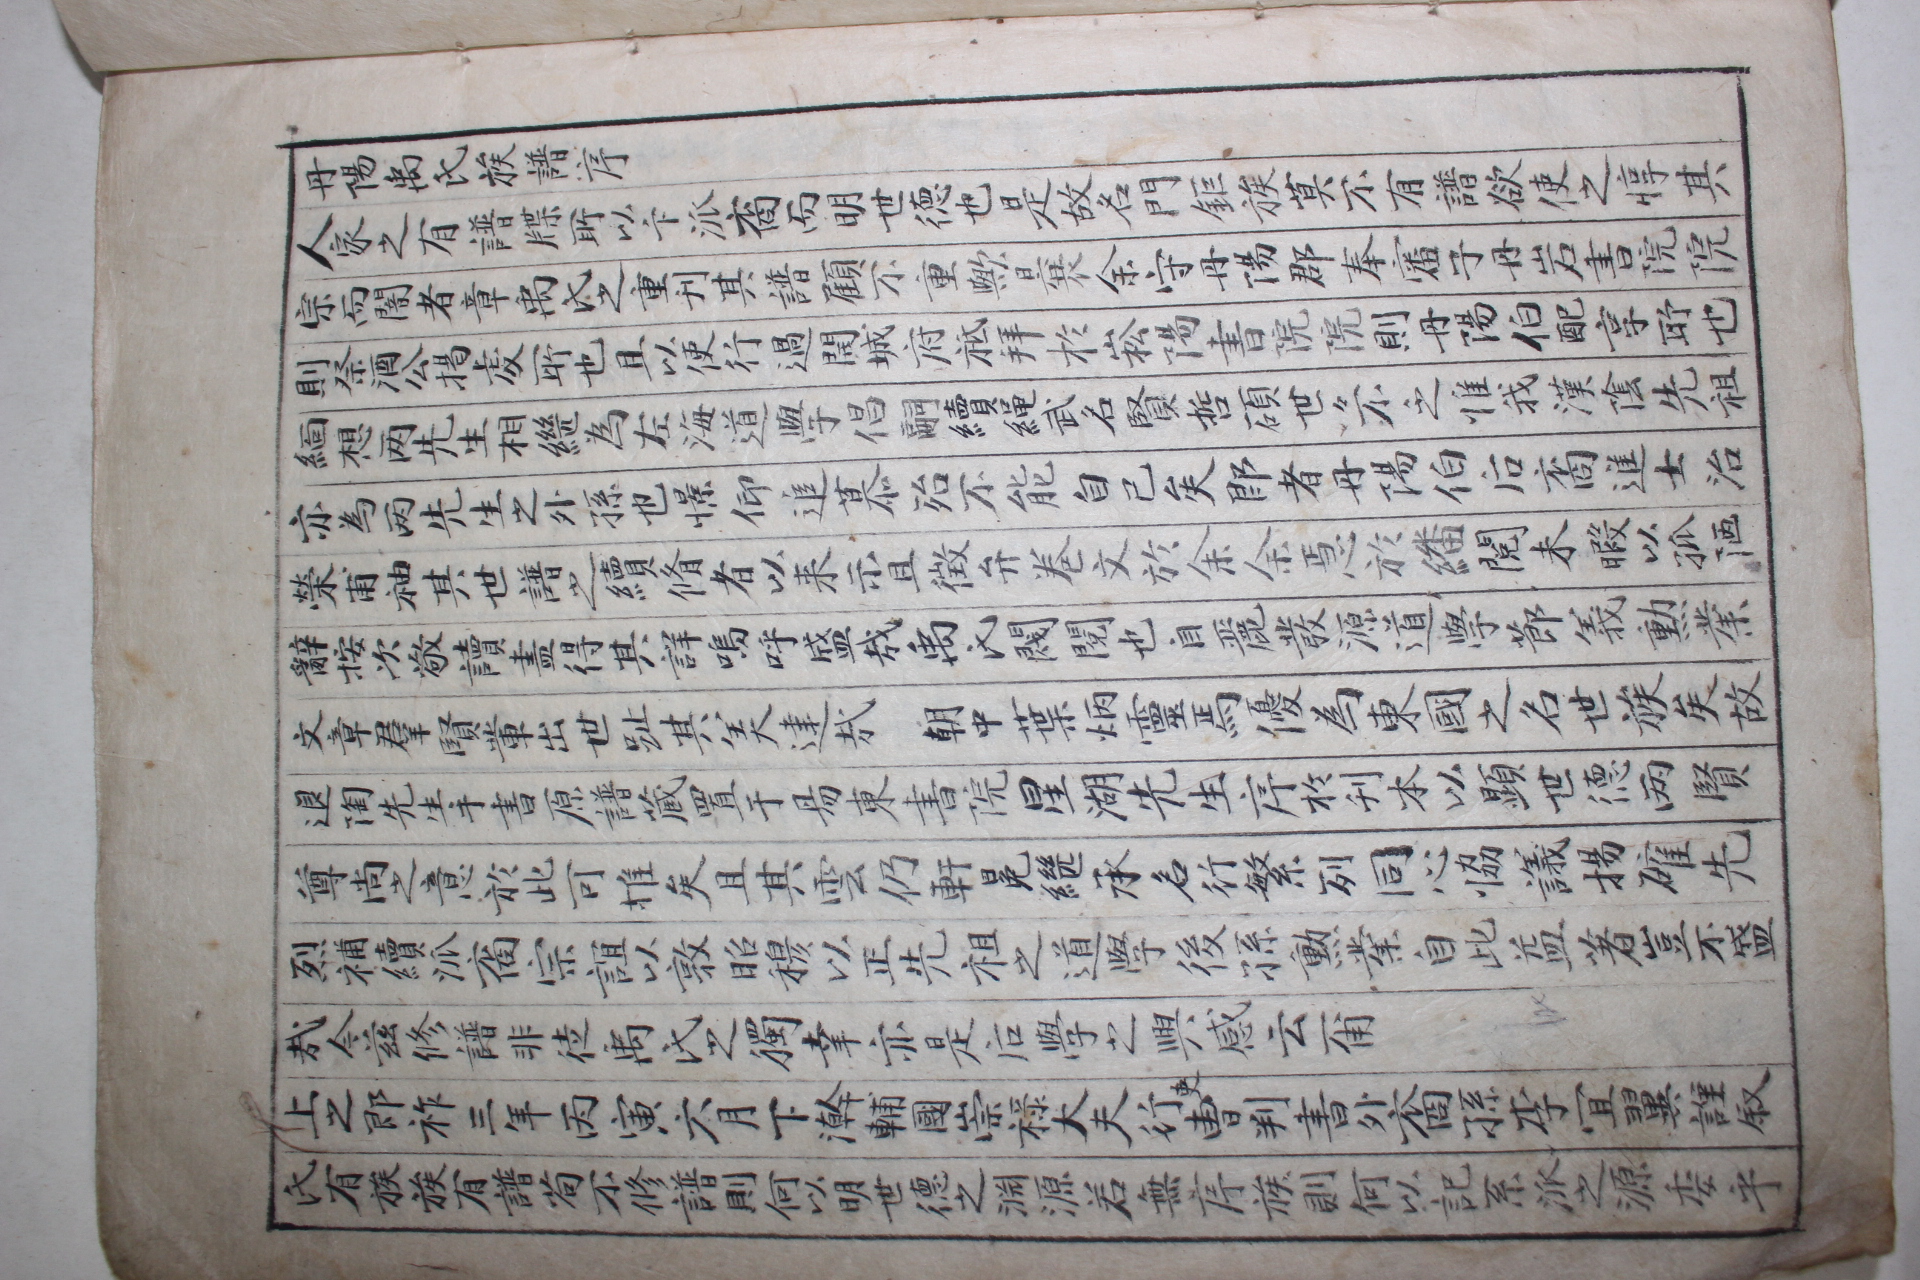 丹陽禹氏族譜序
人家之有譜牒所以卞派裔而明世德也是故名門鉅族莫不有譜欲使之惇其
宗而闇者章禹氏之重刊其譜顧不重歟曩余守丹陽郡奉審于丹岩書院院
則祭酒公揭虔所也且以使行過開城府祗拜於崧陽書院院則丹陽伯配享所也
緬想兩先生相繼為左海道學倡嗣續繩武名賢哲碩世々不乏惟我漢陰先祖
亦為兩先生之外孫也憬仰追慕殆不能自已矣郎者丹陽伯后裔進士治
榮甫袖其世譜之續脩者以来示且徵弁卷文於余余焉於繙閱未暇以孤陋
辭按次敬讀盡得其詳嗚呼盛哉禹氏閥閱也自麗發源道學節義勳業
文章群賢輩出世趾其美達哉 朝中葉炳靈焉優為東國之名世族矣故
退陶先生手書原譜蔵置于易東書院星湖先生序於刊本以顯世德兩賢
尊尚之意於此可推矣且其雲仍軒冕継承名行繁列同心恊議揚確先
烈補續派裔宗誼以敦昭穆以正先祖之道學後孫勳業自此益著豈不盛
哉今玆修譜非徒禹氏之獨幸亦是后學之興感云甭
上之郎祚三年丙寅六月下澣輔國崇祿大夫行吏曹判書外裔孫李宜翼謹叙
氏有族族有譜苟不修譜則何以明世德之淵源若無序族則何以記系派之源委乎